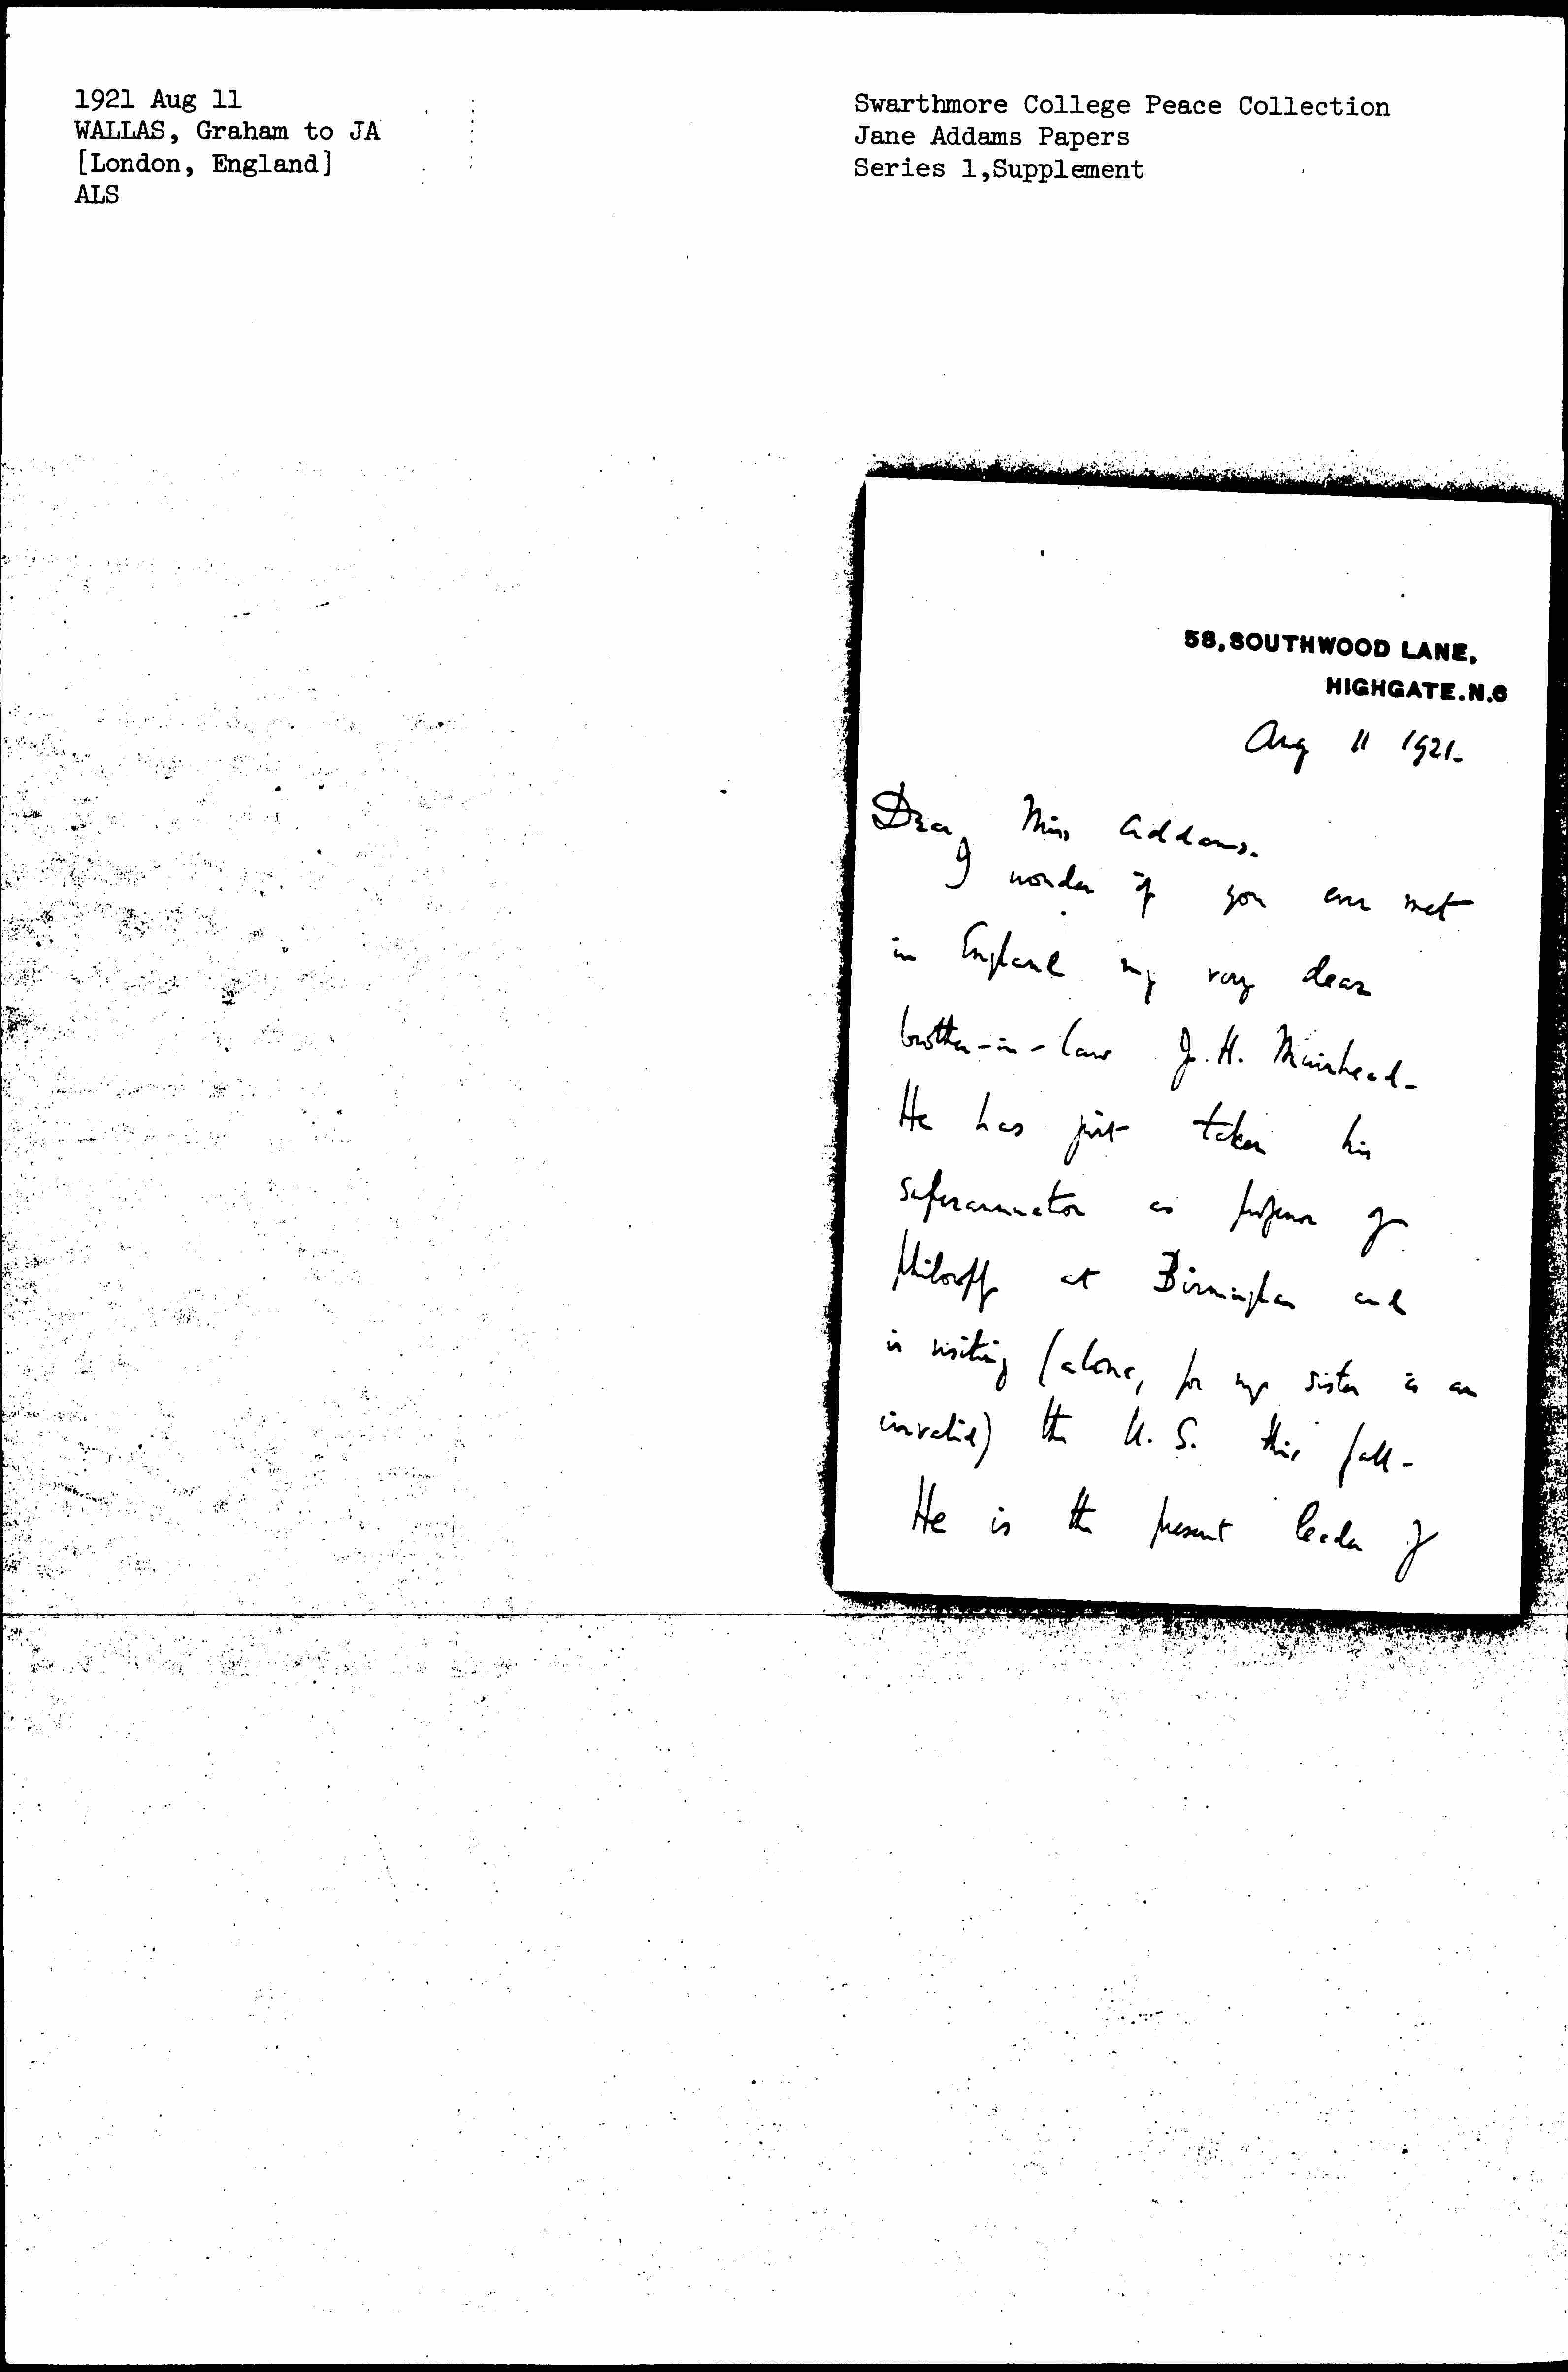 1921 Aug 11
WALLAS, Graham to JA
[London, England]
ALS
Swarthmore College Peace Collection
Jane Addams Papers
Series 1,Supplement
58, SOUTHWOOD LANE,
HIGHGATE. N.6
Aug 11 1921.
Dear Miss Addams.
I wonder if you ever met
in England my very dear
brother-in-law J. H. Muirhead-
He has just taken his
superannuation as professor of
philosophy at Birmingham and
is visiting (alone, for my sister is an
invalid) the U. S. this fall-
He is the present leader of